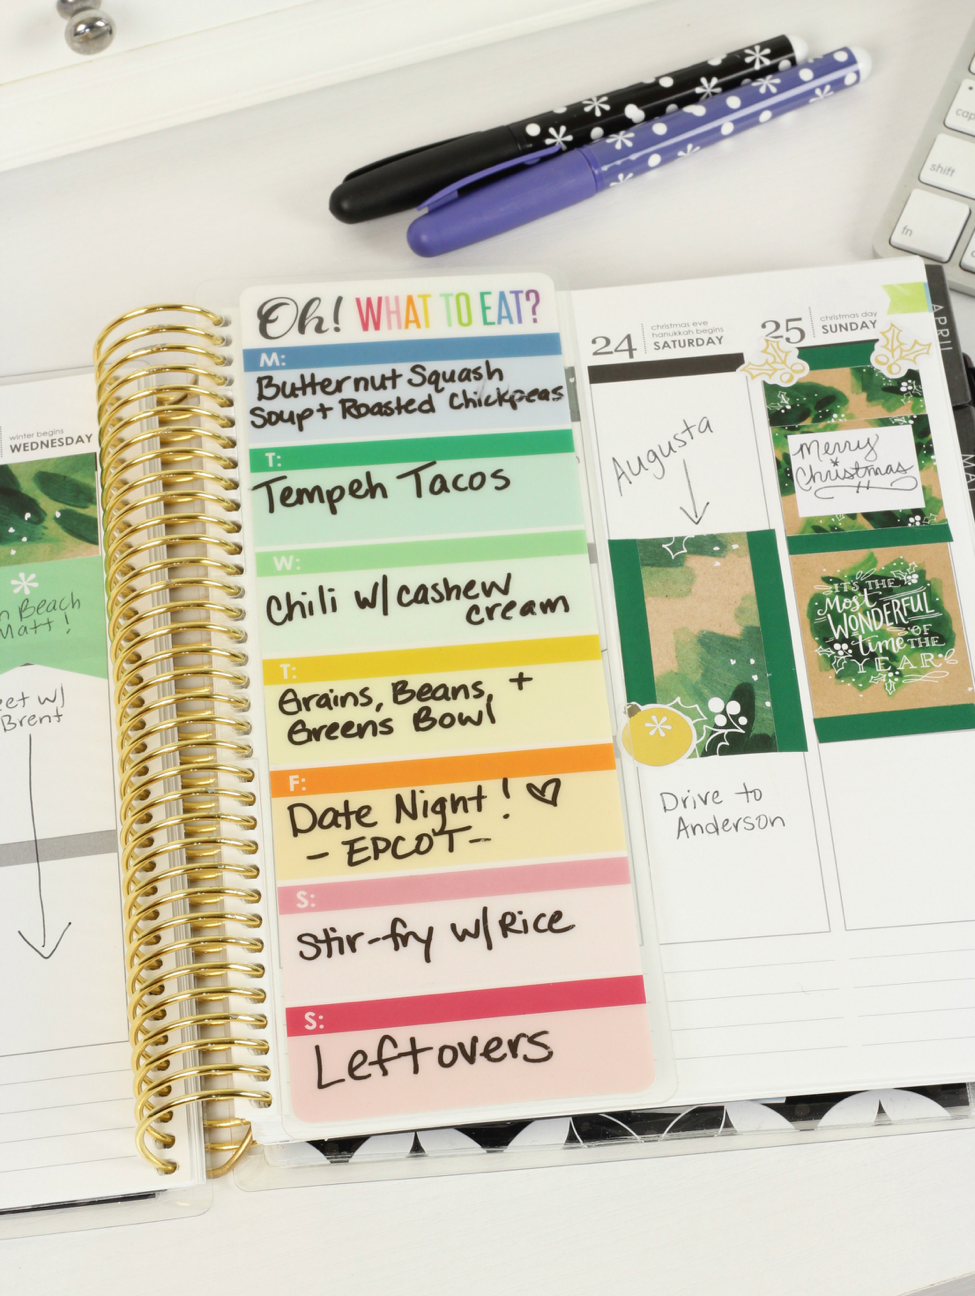 cap
shift
fn
APRIL
winter begins
WEDNESDAY
Beach
Matt!
w/
Brent
Oh! WHAT TO EAT?
M:
Butternut Squash
Soup + Roasted Chickpeas
T:
Tempeh Tacos
W:
Chili w/cashew
cream
T:
Grains, Beans, +
Greens Bowl
F:
Date Night! ♡
- EPCOT -
S:
Stir-fry w/Rice
S:
Leftovers
24
christmas eve
hanukkah begins
SATURDAY
Augusta
Drive to
Anderson
25
christmas day
SUNDAY
Merry
Christmas
IT'S THE
Most
WONDERFUL
time OF THE
YEAR